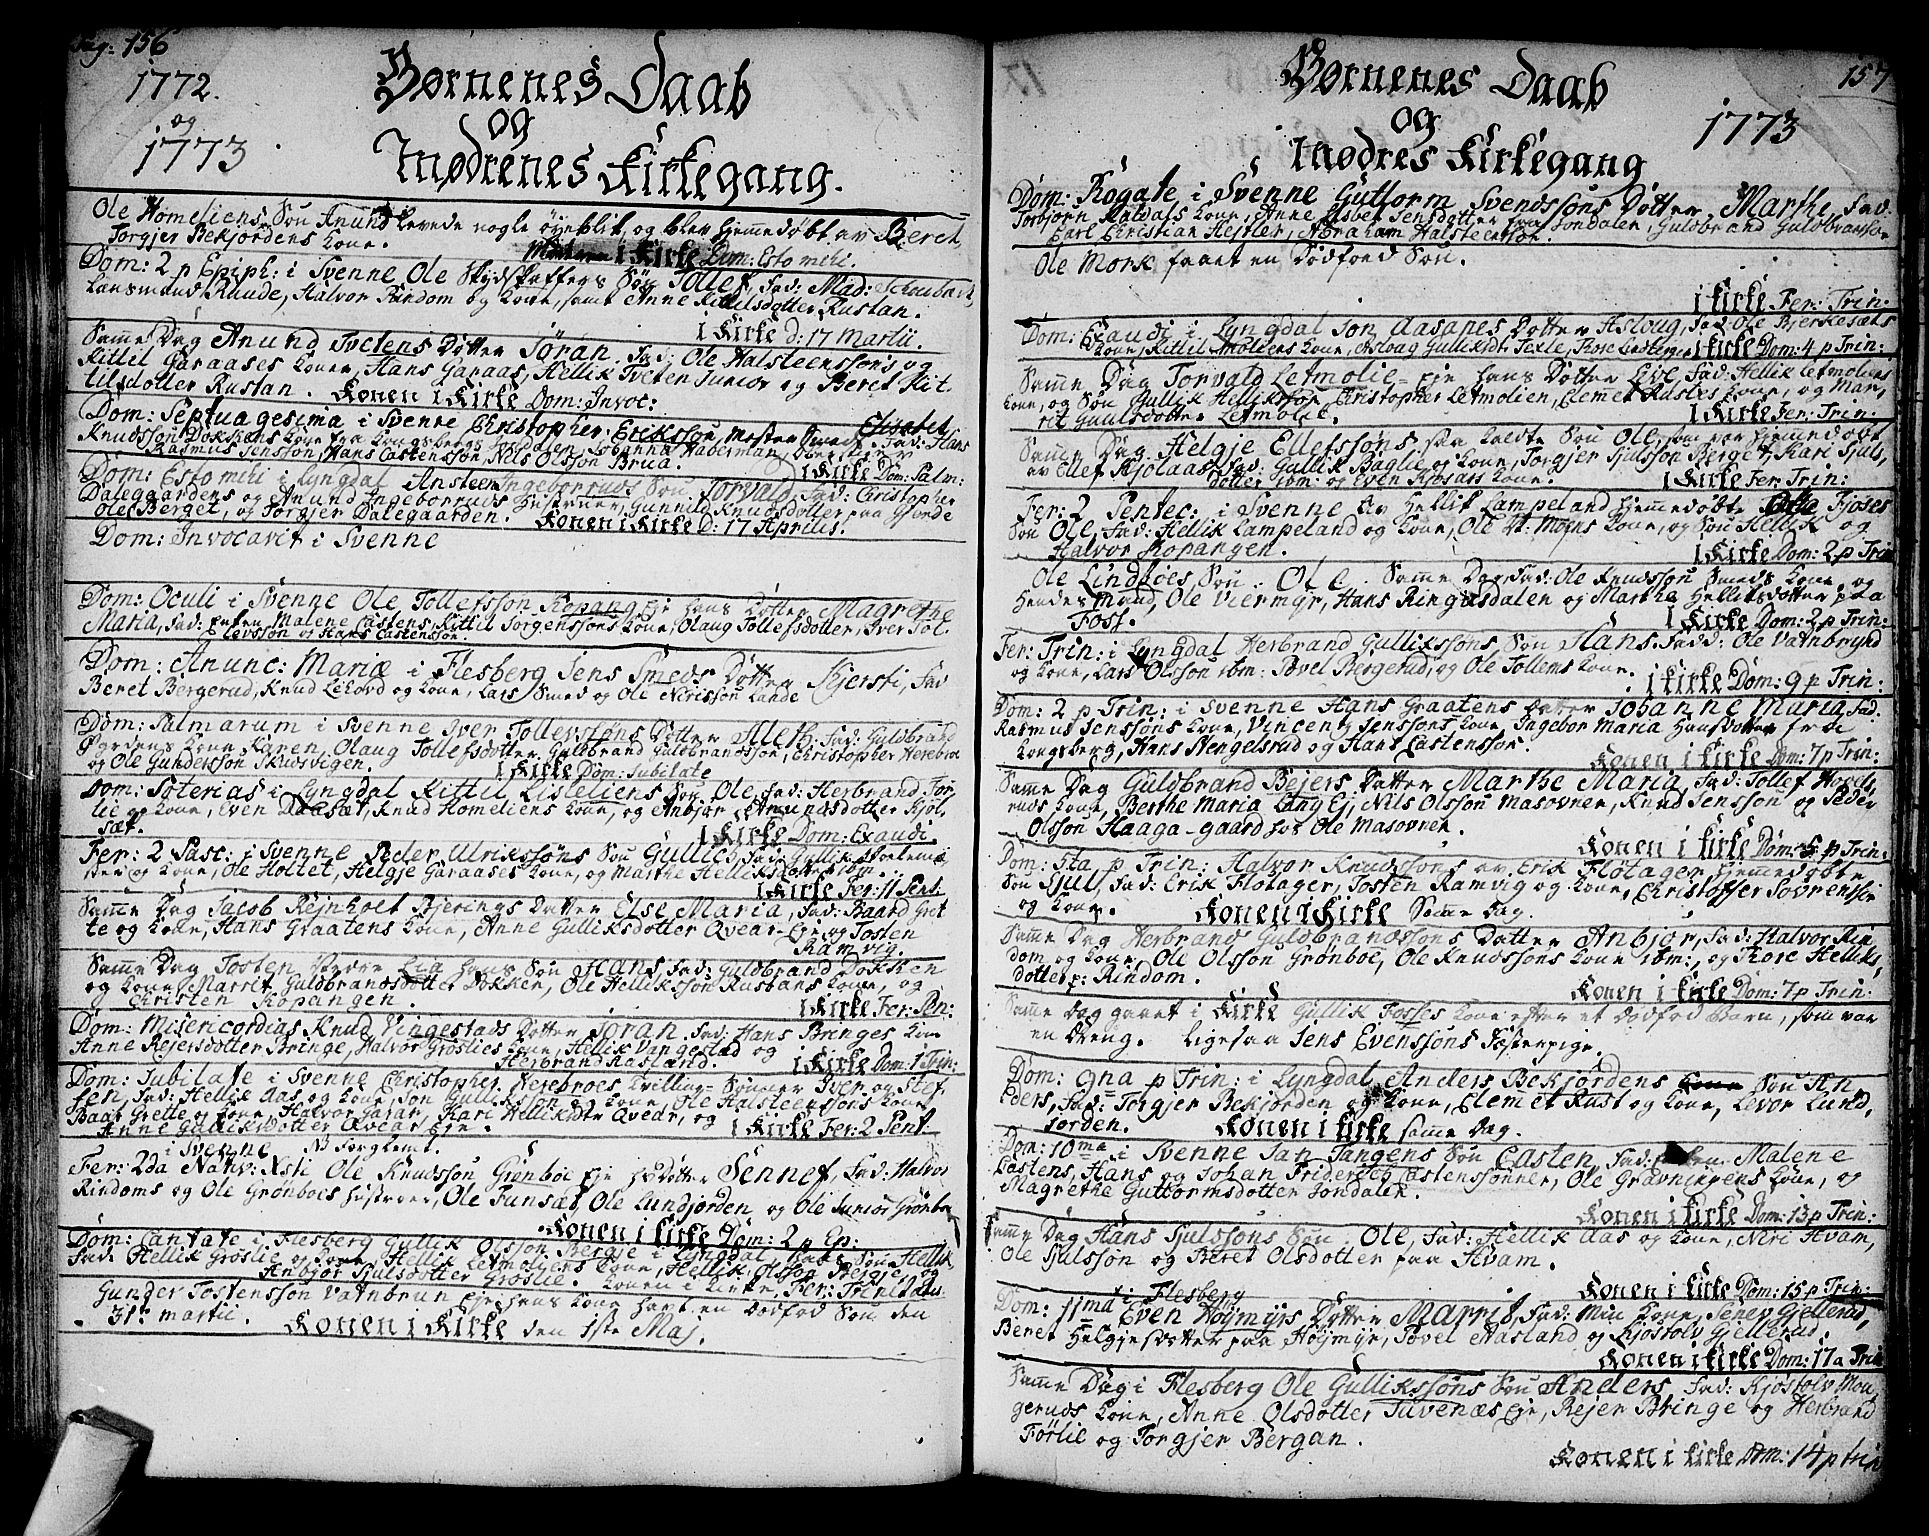 Pag: 156
1772.
og
1773
Børnenes Daab
og
Mødrenes Kirkegang.
Ole Homeliens Søn Anund levede nogle øyeblik og blev hjemmedøbt av Beret
Torgjer Bekjordens Kone.
Moderen i Kirke Dom: Esto mihi.
Dom: 2 p Epiph: i Svenne Ole Skydskaffers Søn Tollef, Fad: Mad: Schoubart,
Lansmand Ruude, Halvor Rindom og Kone, samt Anne Kittilsdotter Rustan.
i Kirke d: 17 Martii.
Samme Dag Anund Tvetens Dotter Jøran. Fad: Ole Halsteenssøns og
Kittil Garaases Koner, Hans Garaas, Hellik Tveten Junior og Beret Kit
tilsdotter Rustan. Konen i Kirke Dom: Invoc:
Dom: Septuagesima i Svenne Christopher Erikssøn, Mester Smeds Elisabet
Fad: Hans
Knudssøn Dokkens Kone fra Kongsberg, Johanna Haberman,
Rasmus Jenssøn, Hans Castenssøn, Nils Olssøn Brua.
i Kirke Dom: Palm:
Dom: Esto mihi i Lyngdal Ansteen Ingeborruds Søn Torvald, Fad: Christopher
Dalegaardens og Anund Ingeborruds Hustruer, Gunnild Knudsdotter paa Gjevde
Ole Berget, og Torgjer Dalegaarden. Konen i Kirke d: 17 Aprilis.
Dom: Invocavit i Svenne
Dom: Oculi i Svenne Ole Tollefssøn Kopang Eje hans Dotter Magrethe
Maria, Fad: Enken Malene Castens, Kittil Torgenssøns Kone, Olaug Tollefsdotter, Iver Tol
levssøn og Hans Castenssøn.
Dom: Anunc: Mariæ i Flesberg Jens Smeds Dotter Kjersti, Fad
Beret Bergerud, Knud Lekovd og Kone, Lars Smed og Ole Nirissøn Laande
Dom: Palmarum i Svenne Iver Tollevssøns Dotter Aleth: Fad: Guldbrand
Øgardens Kone Karen, Olaug Tollefsdotter, Guldbrand Guldbrandssøn, Christopher Herebroe
og Ole Gunderssøn Skudsvigen.
i Kirke Dom: Jubilate
Dom: Soterias i Lyngdal Kittil Lisleliens Søn Ole, Fad: Herbrand Tor
lie og Kone, Even Daasæt, Knud Homeliens Kone, og Anbjør Amunasdotter Kjøl
sæt.
i Kirke Dom: Exaudi.
Fer: 2 Pasc: i Svenne Peder Ulrikssøns Søn Gulleg, Fad: Gullik Skolema
ster og Kone, Ole Holtet, Helgje Garaases Kone, og Marthe Helliksdotter ibm.
i Kirke Fer: 11 Pent.
Samme Dag Jacob Rejnholt Bjerings Datter Else Maria, Fad: Baard Gret
te og Kone, Hans Graatens Kone, Anne Gulliksdotter Qvear-Eje og Tosten
Ramvig.
Samme Dag Tosten Nedre Lia hans Søn Hans, Fad: Guldbrand Dokken
og Kone, Marrit Guldbrandsdotter Dokken, Ole Hellikssøn Rustans Kone, og
Christen Kopangen.
i Kirke Fer: Pen:
Dom: Misericordias Knud Vingestads Dotter Jøran. Fad: Hans Bringes Kone
Anne Rejersdotter Bringe, Halvor Groslies Kone, Hellik Vangestad og
Herbrand Aasland.
i Kirke Dom: 1 Trin:
Dom: Jubilate i Svenne Christopher Herebroes tvilling-Sønner Iver og Stef
fen, Fad: Hellik Aas og Kone, Jon Gullikssøn og Kone, Ole Halsteenssøns Kone,
Baar Grette og Kone, Halvor Garar, Kari Helliksdtr Qvear, og
Anne Gulliksdotter Qvear Eje.
i Kirke Fer: 2 Pent.
i Svenne NB forglemt.
Fer: 2da Nativ: Xsti Ole Knudssøn Grønboe Eje hs Dotter Sennef, Fad: Halvor
Rindoms og Ole Grønboes Hustruer, Ole Funsæt, Ole Lundjorden og Ole Junior Grønboe
Konen i Kirke Dom: 2 p Ep:
Dom: Cantate i Flesberg Gullik Olssøn Bergje i Lyngdal hans Søn Hellik
Fad: Hellik Groslie og Kone, Hellik Letmoliens Kone, Hellik Olssøn Bergje, og
Anbjør Sjulsdotter Groslie. Konen i Kirke, Fer: Trinitatis
Gunder Tostenssøn Vatnbrun Eje hans Kone havt en Dødfød Søn den
31te martii. Konen i Kirke den 1ste Maj.
157
1773
Børnenes Daab
og
Mødres Kirkegang
Dom: Rogate i Svenne Guttorm Svendssøns Dotter Marthe, Fad:
Torbjørn Kaldals Kone, Anne Elsbet Jensdotter fra Jondalen, Guldbrand Guldbrandssøn
Carl Christian Hejtler, Abraham Halsteenssøn.
Ole Mork faaet en Dødfød Søn.
i Kirke Fer: Trin:
Dom: Exaudi i Lyngdal Jon Aasanes Dotter Asloug, Fad: Ole Bjerkesæts
Kone, Kittil Moleens Kone, Aslaag Gulliksdr Texle, Thore Lindberget
i Kirke Dom: 4 p Trin:
Samme Dag Torvald Letmolie-Eje hans Dotter Live, Fad: Hellik Letmoliens
Kone, og Søn Gullik Hellikssøn, Christopher Letmolien, Clemet Rustes Kone, og Mar,
rit Guulsdotter Letmolie.
i Kirke Fer: Trin:
Samme Dag Helgje Ellefssøns saa kaldte Søn Ole, som var hjemmedøbt
av Ellef Kjølaas Fad: Gullik Baglie og Kone, Torgjer Sjulssøn Berget, Kari Sjuls,
dotter ibm: og Even Kjøsaas Kone.
i Kirke Fer: Trin:
Fer: 2 Pentec: i Svenne Av Hellik Lampeland hjemmedøbte Fjøses
Søn Ole, Fad: Hellik Lampeland og Kone, Ole Vt. Moens Kone, og Søn Hellik og
Halvor Kopangen.
i Kirke Dom: 2 p Trin
Ole Lindboes Søn: Ole. Samme Dag, Fad: Ole Knudssøn Smeds Kone, og
Hendes Mand, Ole Viermyr, Hans Ringasdalen og Marthe Helliksdotter paa
Foss.
i Kirke Dom: 2 p Trin:
Fer: Trin: i Lyngdal Herbrand Gullikssøns Søn Hans. Fadd: Ole Vatnbrynd
og Kone, Lars Olssøn ibm: Povel Bergerud, og Ole Tollens Kone.
i Kirke Dom: 9 p Trin:
Dom: 2 p Trin: i Svenne Hans Graatens Datter Johanne Maria, Fad.
Rasmus Jenssøns Kone, Vincentz Jenssøns Kone, Ingebor Maria Hansdotter fra
Kongsberg, Hans Stengelsrud og Hans Castenssøn.
Konen i Kirke Dom: 7 p Trin:
Samme Dag Guldbrand Bejers Datter Marthe Maria, Fad: Tollef Hvæds,
ruds Kone, Berthe Maria Lang Ej, Nils Olssøn Masovnen, Knud Jenssøn og Peder
Olssøn Haaga-gaard hos Ole Masovnen.
Konen i Kirke Dom: 5 p Trin:
Dom: 5ta p Trin: Halvor Knudssøns av Erik Fløtager hjemmedøbte
Søn Sjul, Fad: Erik Flotager, Tosten Ramvig og Kone, Christoffer Sovrenssøn
og Kone.
Konen i Kirke Samme Dag.
Samme Dag Herbrand Guldbrandssøns Datter Anbjør, Fad: Halvor Rin
dom og Kone, Ole Olssøn Grønboe, Ole Knudssøns Kone ibm:, og Thore Helliks,
dotter p: Rindom.
Konen i Kirke Dom: 7 p Trin:
Samme Dag gaaet i Kirke Gullik Fosses Kone efter et Dødfød Barn, som var
en Dreng. Ligesaa Jens Evenssøns Fæstepige.
Dom: 9na p Trin: i Lyngdal Anders Bekjordens Kone Søn An
ders, Fad: Torgjer Bekjorden og Kone, Clemet Rust og Kone, Levor Lund,
jorden.
Konen i Kirke samme Dag.
Dom: 10ma i Svenne Jan Tangens Søn Casten Fad: Malene
Castens, Hans og Johan Friderich Castenssønner, Ole Gravningens Kone, og
Magrethe Guttormsdotter Jondalen.
Konen i Kirke Dom: 13 p Trin:
Samme Dag Hans Sjulssøns Søn. Ole, Fad: Hellik Aas og Kone, Niri Hvam,
Ole Sjulssøn og Beret Olsdotter paa Hvam.
Konen i Kirke Dom: 15 p Trin:
Dom: 11ma i Flesberg
Even Høymyrs Dotter Marrit, Fad: Min Kone, Senev Gjellerud,
Beret Helgjesdotter paa Høymyr, Povel Aasland og Kjøstolv Gjellerud.
Konen i Kirke Dom: 17 a Trin
Samme Dag i Flesberg Ole Gullikssøns Søn Anders, Fad: Kjøstolv Mon
geruds Kone, Anne Olsdotter Juvenæs Eje, Rejer Bringe og Herbrand
Førlie og Torgjer Bergan.
Konen i Kirke Dom: 14 p Trin